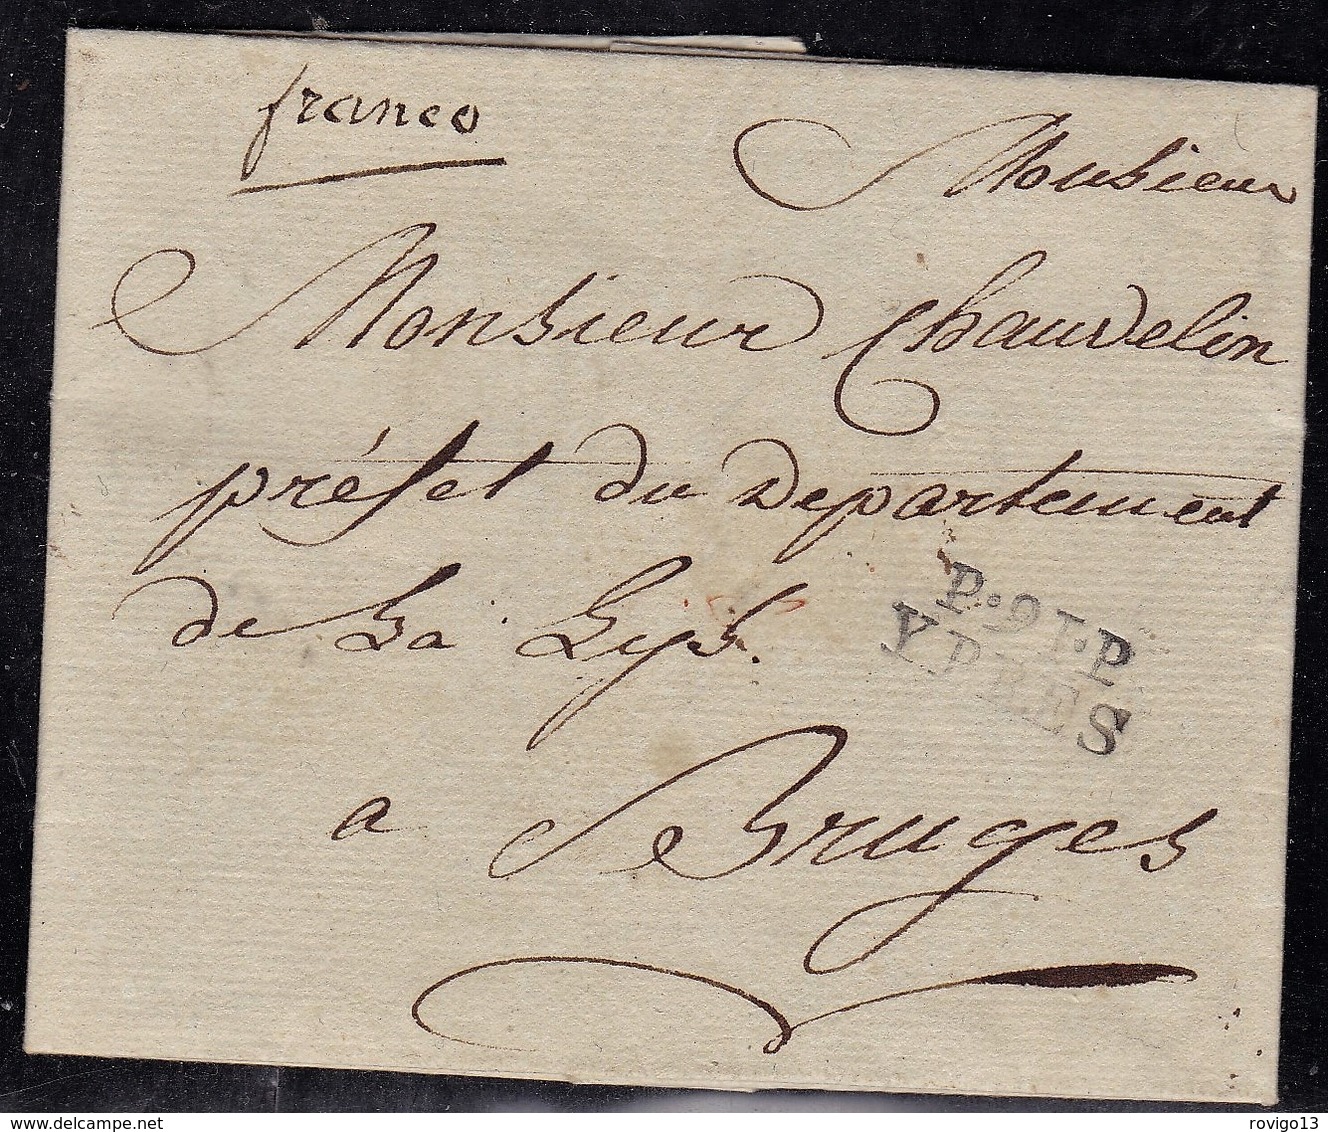 franco
Monsieur
Monsieur Chauvelin
préfet du Departement
de La Lys.
a Bruges
P.91.P
YPRES
delcampe.net
rovigo13